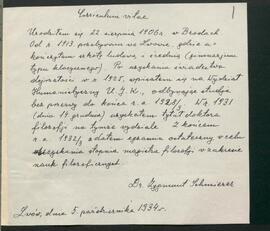 1
Curriculum vitae
Urodziłem się 22 sierpnia 1906 r. w Brodach
Od r. 1913 przebywam we Lwowie, gdzie u-
kończyłem szkołę ludową i średnią (gimnazjum
typu klasycznego). Po uzyskaniu świadectwa
dojrzałości w r. 1925, wpisałem się na Wydział
Humanistyczny U.J.K., odbywając studja
bez przerwy do końca r. 1928/9. W r. 1931
(dnia 14 grudnia) uzyskałem tytuł doktora
filozofji na tymże wydziale. Z końcem
r. 1932/3 zdałem egzamin ostateczny w celu
uzyskania stopnia magistra filozofji w zakresie
nauk filozoficznych.
Dr. Zygmunt Schmierer
Lwów, dnia 5. października 1934 r.